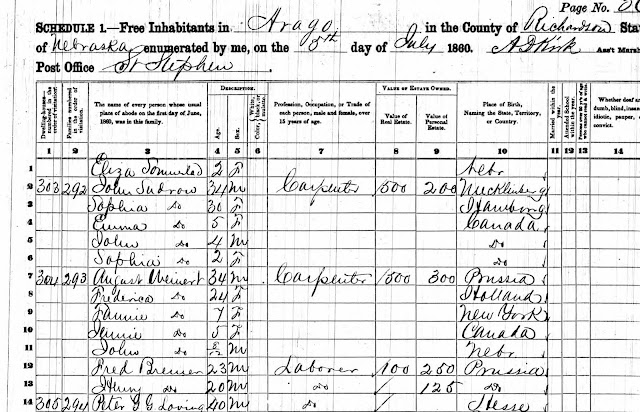 Page No.
SCHEDULE 1.—Free Inhabitants in Arago in the County of Richardson Stat
of Nebraska enumerated by me, on the 5th day of July 1860. A D Kirk Ass't Marsh
Post Office St Stephen
DESCRIPTION. VALUE OF ESTATE OWNED.
The name of every person whose usual place of abode on the first day of June, 1860, was in this family. Age. Sex. Profession, Occupation, or Trade of each person, male and female, over 15 years of age. Value of Real Estate. Value of Personal Estate. Place of Birth, Naming the State, Territory, or Country. Married within the year. Attended School within the year.
1 2 3 4 5 6 7 8 9 10 11 12 13 14
1 Eliza 2 F Nebr
2 303 292 John Sudrow 34 M Carpenter 1500 200 Mecklinberg
3 Sophia Do 30 F Hamburg
4 Emma Do 5 F Canada
5 John Do 4 M Do
6 Sophia Do 2 F Do
7 304 293 August Weinert 34 M Carpenter 1500 300 Prussia
8 Frederica Do 24 F Holland
9 Fannie Do 7 F New York
10 Jennie Do 5 F Canada
11 John Do M Nebr
12 Fred Bremer 23 M Laborer 100 250 Prussia
13 Henry Do 20 M Do / 125 Do
14 305 294 Peter 40 M Do / Hesse